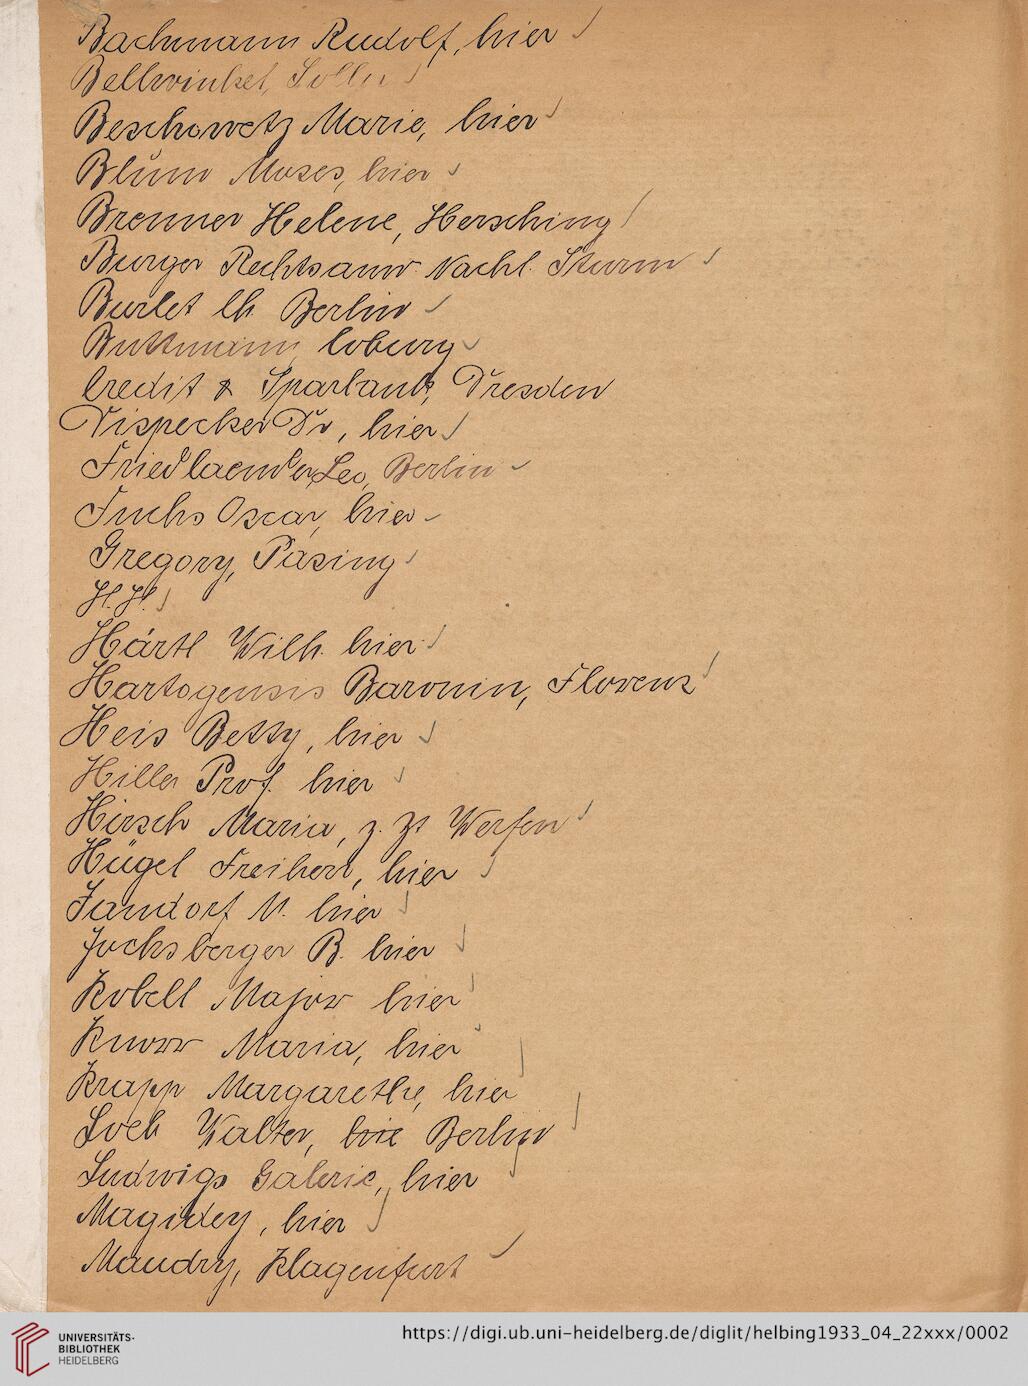 Bachmann Rudolf, hier
Bellwinkel, Solln
Beschowetz Marie, hier
Blum Moses, hier
Brenner Helene, Hersching
Burger Rechtsanw. Nachl. Sturm
Burlet Ch. Berlin
Buttmann, Coburg
Credit & Sparbank, Dresden
Dispecker Dr, hier
Friedlaender, Leo, Berlin
Fuchs Oscar, hier
Gregory, Pasing
H. H.
Härtl Wilh. hier
Hartogensis Baronin, Florenz
Heis Betty, hier
Hiller Prof. hier
Hirsch Maria, z. Zt Werfen
Hügel Freiherr, hier
Jandorf M. hier
Jochsberger B. hier
Kobell Major hier
Knorr Maria, hier
Krapp Margarethe, hier
Loeb Walter, Berlin
Ludwigs Galerie, hier
Magidey, hier
Mandry, Klagenfurt
UNIVERSITÄTS-
BIBLIOTHEK
HEIDELBERG
https://digi.ub.uni-heidelberg.de/diglit/helbing1933_04_22xxx/0002